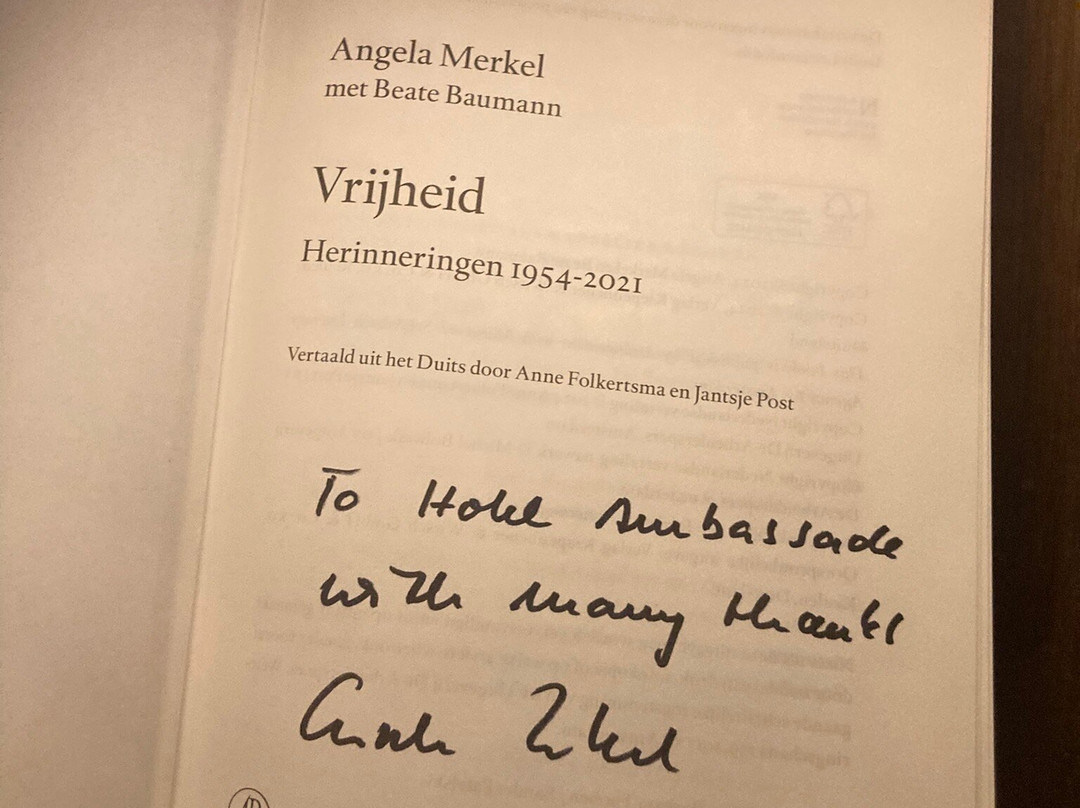 Angela Merkel
met Beate Baumann
Vrijheid
Herinneringen 1954-2021
Vertaald uit het Duits door Anne Folkertsma en Jantsje Post
To Hotel Ambassade
with many thanks
Angela Merkel